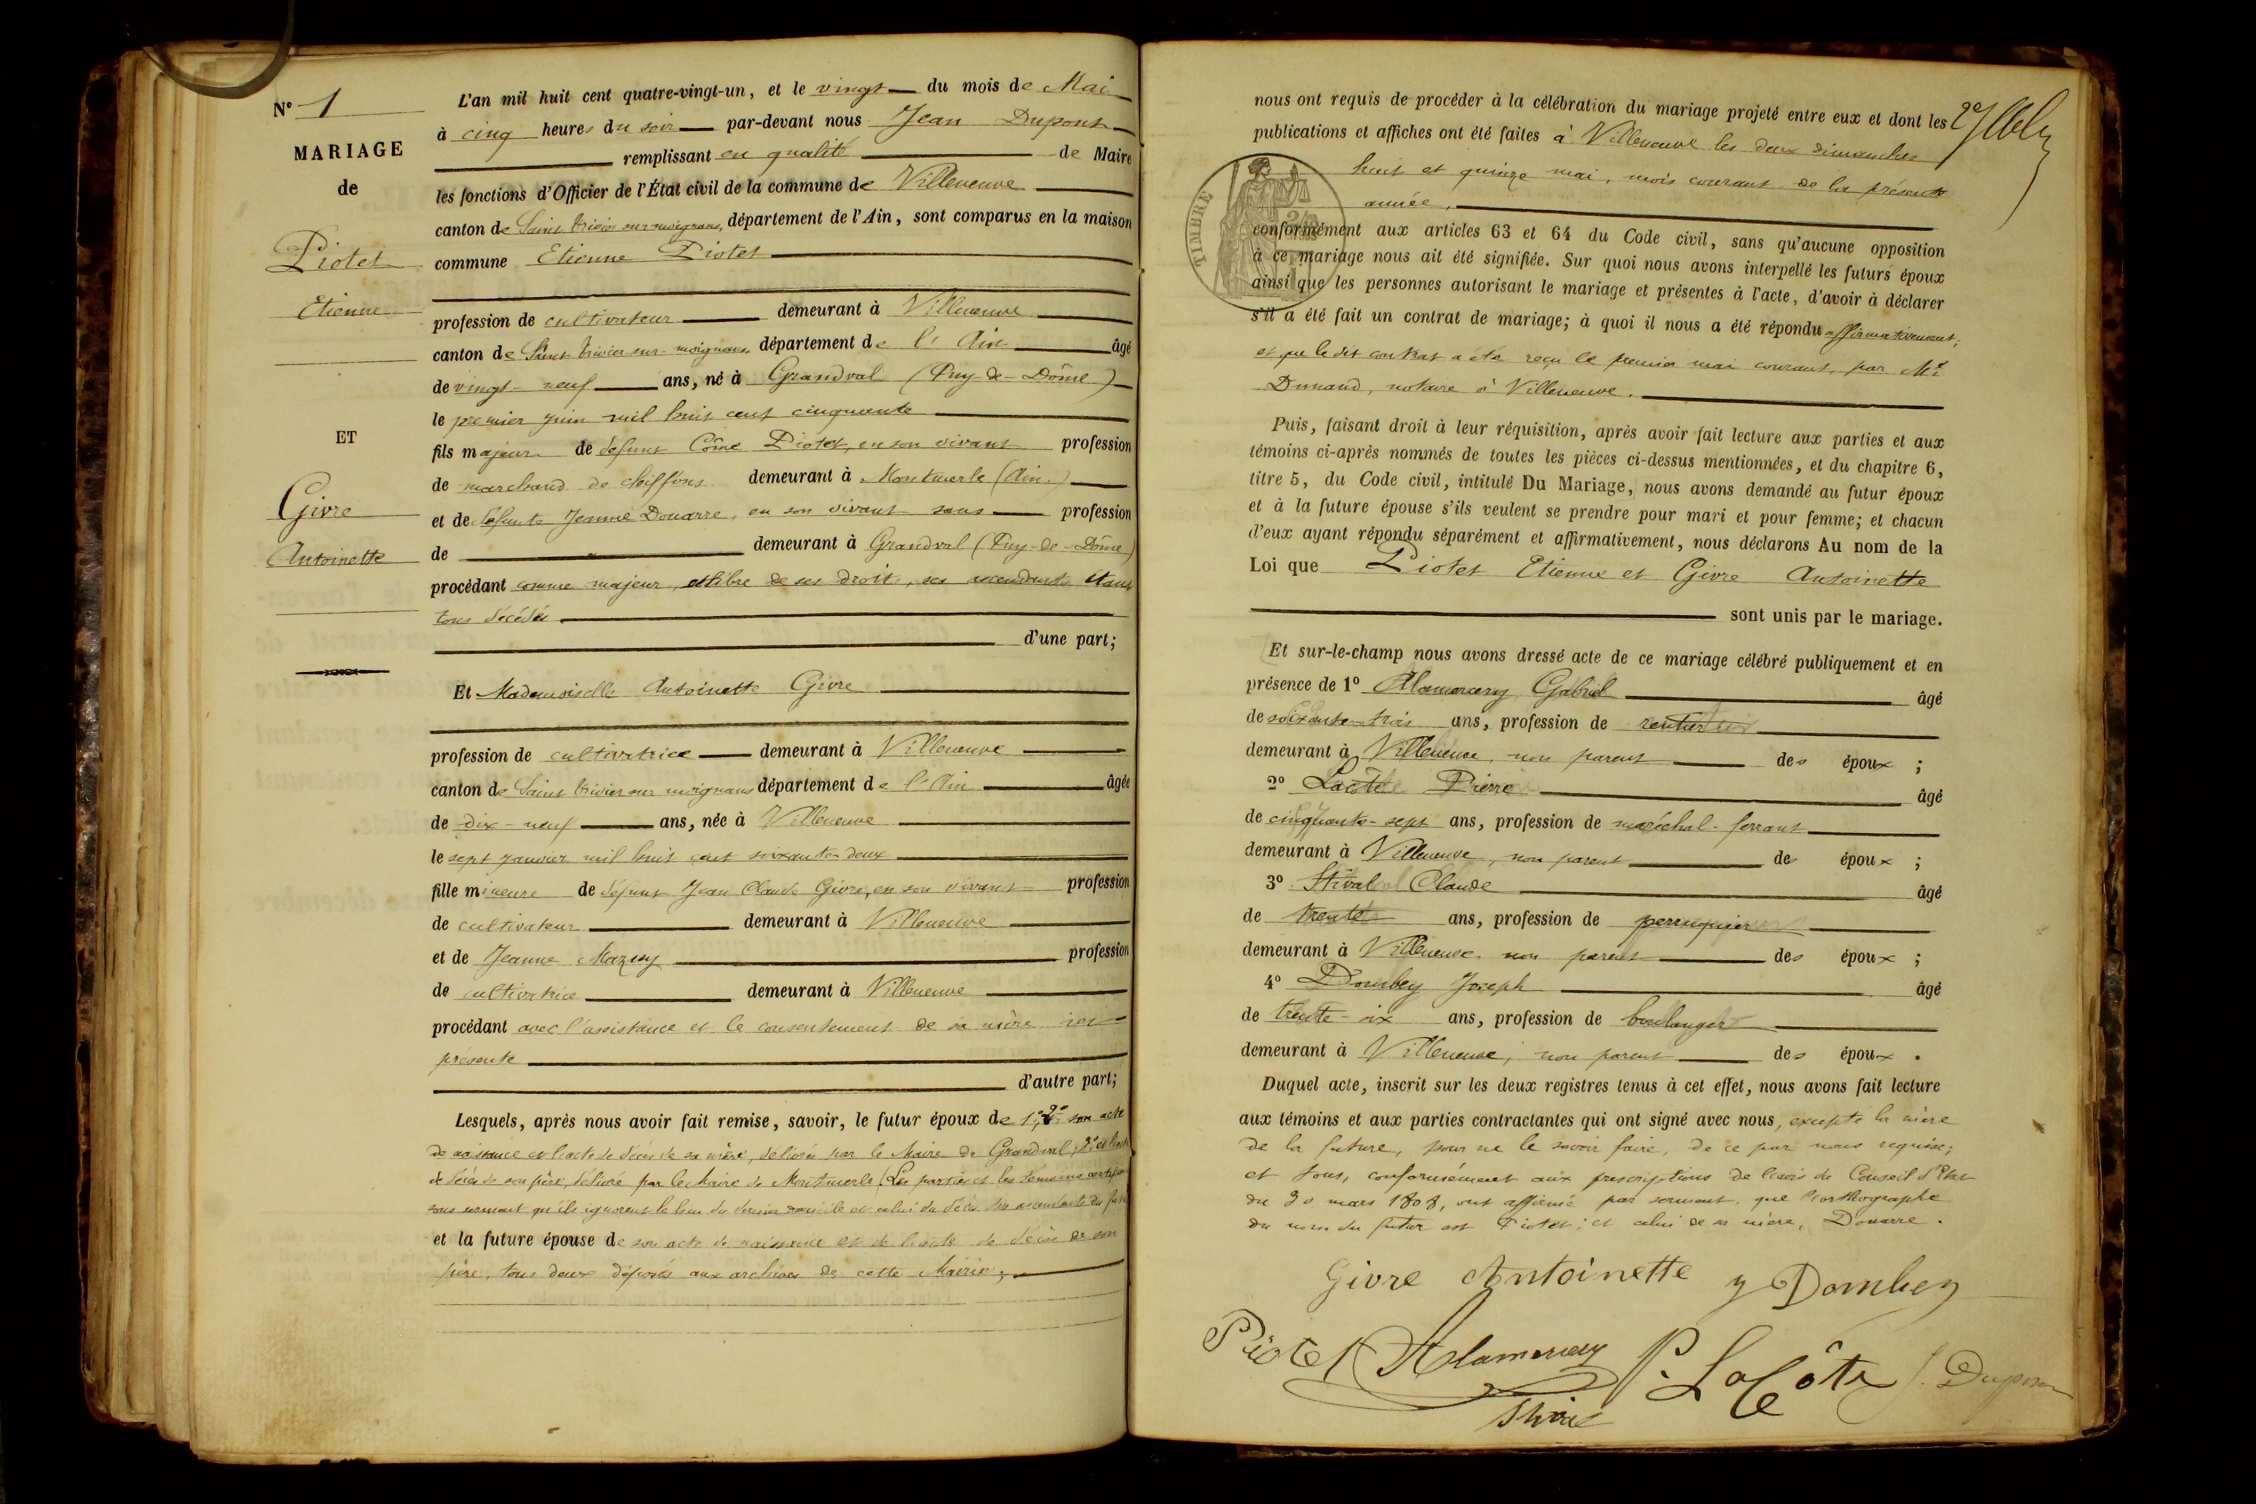 N° 1
MARIAGE
de
Piotet
Etienne
ET
Givre
Antoinette
L'an mil huit cent quatre-vingt-un, et le vingt du mois de Mai
à cinq heures du soir par-devant nous Jean Dupont
remplissant en qualité de Maire
les fonctions d'Officier de l'État civil de la commune de Villeneuve
canton de Saint Trivier sur moignans, département de l'Ain, sont comparus en la maison
commune Etienne Piotet
profession de cultivateur demeurant à Villeneuve
canton de Saint Trivier sur moignans département de l'Ain âgé
de vingt-neuf ans, né à Grandval (Puy-de-Dôme)
le premier juin mil huit cent cinquante
fils majeur de défunt Côme Piotet, en son vivant profession
de marchand de chiffons demeurant à Montmerle (Ain.)
et de défunte Jeanne Douarre, en son vivant sans profession
de demeurant à Grandval (Puy-de-Dôme)
procédant comme majeur, et libre de ses droits, ses ascendants étant
tous décédés
d'une part;
Et Mademoiselle Antoinette Givre
profession de cultivatrice demeurant à Villeneuve
canton de Saint Trivier sur moignans département de l'Ain âgée
de dix-neuf ans, née à Villeneuve
le sept janvier mil huit cent soixante deux
fille mineure de défunt Jean Claude Givre, en son vivant profession
de cultivateur demeurant à Villeneuve
et de Jeanne Mazuy profession
de cultivatrice demeurant à Villeneuve
procédant avec l'assistance et le consentement de sa mère ici
présente
d'autre part;
Lesquels, après nous avoir fait remise, savoir, le futur époux de 1°, 2° son acte
de naissance et l'acte de décès de sa mère, délivrés par le Maire de Grandval; 3° et l'acte
de décès de son père, délivré par le Maire de Montmerle (Les parties et les témoins certifient
sous serment qu'ils ignorent le lieu du dernier domicile et celui du décès des ascendants du futur
et la future épouse de son acte de naissance et de l'acte de décès de son
père, tous deux déposés aux archives de cette Mairie;
nous ont requis de procéder à la célébration du mariage projeté entre eux et dont les
publications et affiches ont été faites à Villeneuve les deux dimanches
huit et quinze mai, mois courant de la présente
année.
TIMBRE
conformément aux articles 63 et 64 du Code civil, sans qu'aucune opposition
à ce mariage nous ait été signifiée. Sur quoi nous avons interpellé les futurs époux
ainsi que les personnes autorisant le mariage et présentes à l'acte, d'avoir à déclarer
s'il a été fait un contrat de mariage; à quoi il nous a été répondu affirmativement;
et que le dit contrat a été reçu le premier mai courant, par Me
Dumand, notaire à Villeneuve.
Puis, faisant droit à leur réquisition, après avoir fait lecture aux parties et aux
témoins ci-après nommés de toutes les pièces ci-dessus mentionnées, et du chapitre 6,
titre 5, du Code civil, intitulé Du Mariage, nous avons demandé au futur époux
et à la future épouse s'ils veulent se prendre pour mari et pour femme; et chacun
d'eux ayant répondu séparément et affirmativement, nous déclarons Au nom de la
Loi que Piotet Etienne et Givre Antoinette
sont unis par le mariage.
Et sur-le-champ nous avons dressé acte de ce mariage célébré publiquement et en
présence de 1° Alamercery Gabriel âgé
de soixante-trois ans, profession de rentier
demeurant à Villeneuve, non parent des époux ;
2° Lacôte Pierre âgé
de cinquante-sept ans, profession de maréchal-ferrant
demeurant à Villeneuve, non parent des époux ;
3° Stival Claude âgé
de trente ans, profession de perruquier
demeurant à Villeneuve, non parent des époux ;
4° Dombey Joseph âgé
de trente-six ans, profession de boulanger
demeurant à Villeneuve, non parent des époux .
Duquel acte, inscrit sur les deux registres tenus à cet effet, nous avons fait lecture
aux témoins et aux parties contractantes qui ont signé avec nous, excepté la mère
de la future, pour ne le savoir faire, de ce par nous requise;
et tous, conformément aux prescriptions de l'avis du Conseil d'Etat
du 30 mars 1808, ont affirmé par serment, que l'orthographe
du nom du futur est Piotet; et celui de sa mère, Douarre.
Givre Antoinette J Dombey
Piotet Alamercery P. LaCôte J. Dupont
Stival